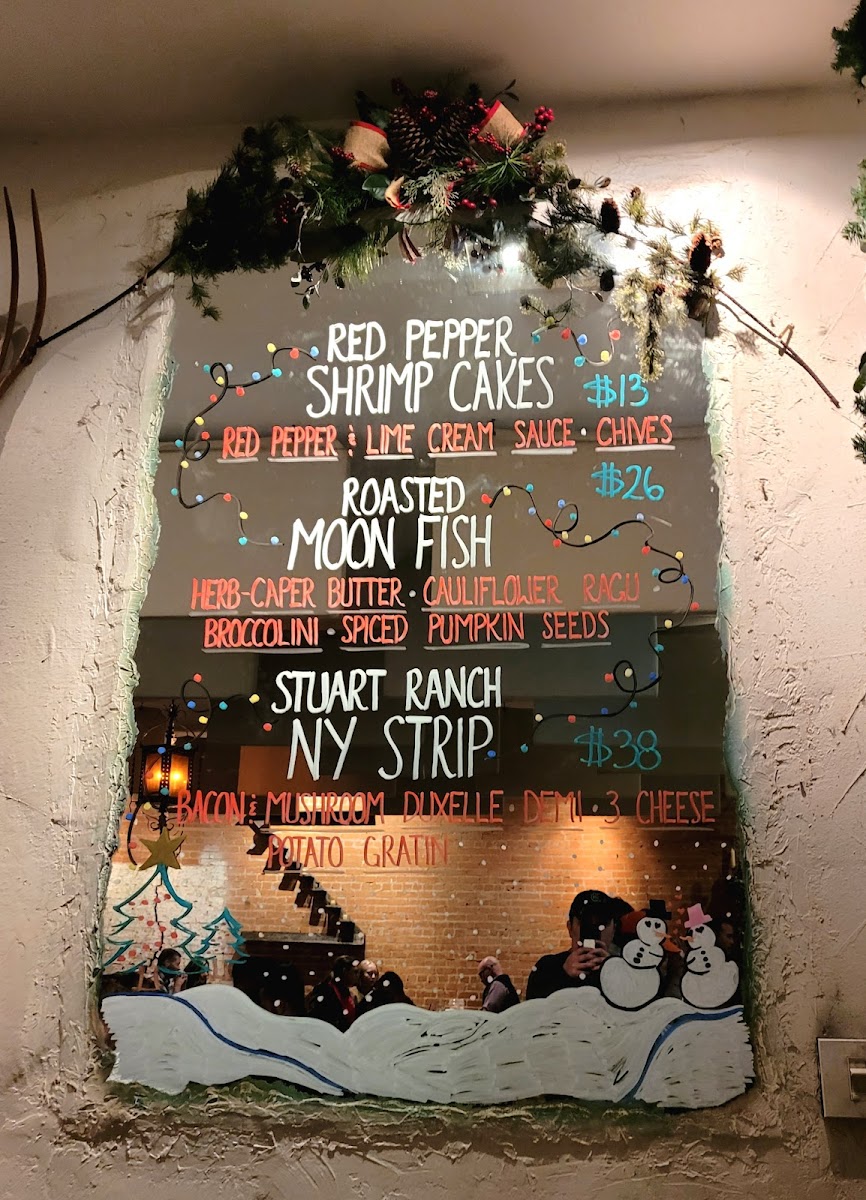 RED PEPPER
SHRIMP CAKES $13
RED PEPPER & LIME CREAM SAUCE · CHIVES
$26
ROASTED
MOON FISH
HERB-CAPER BUTTER · CAULIFLOWER RAGU
BROCCOLINI · SPICED PUMPKIN SEEDS
STUART RANCH
NY STRIP $38
BACON & MUSHROOM DUXELLE · DEMI · 3 CHEESE
POTATO GRATIN